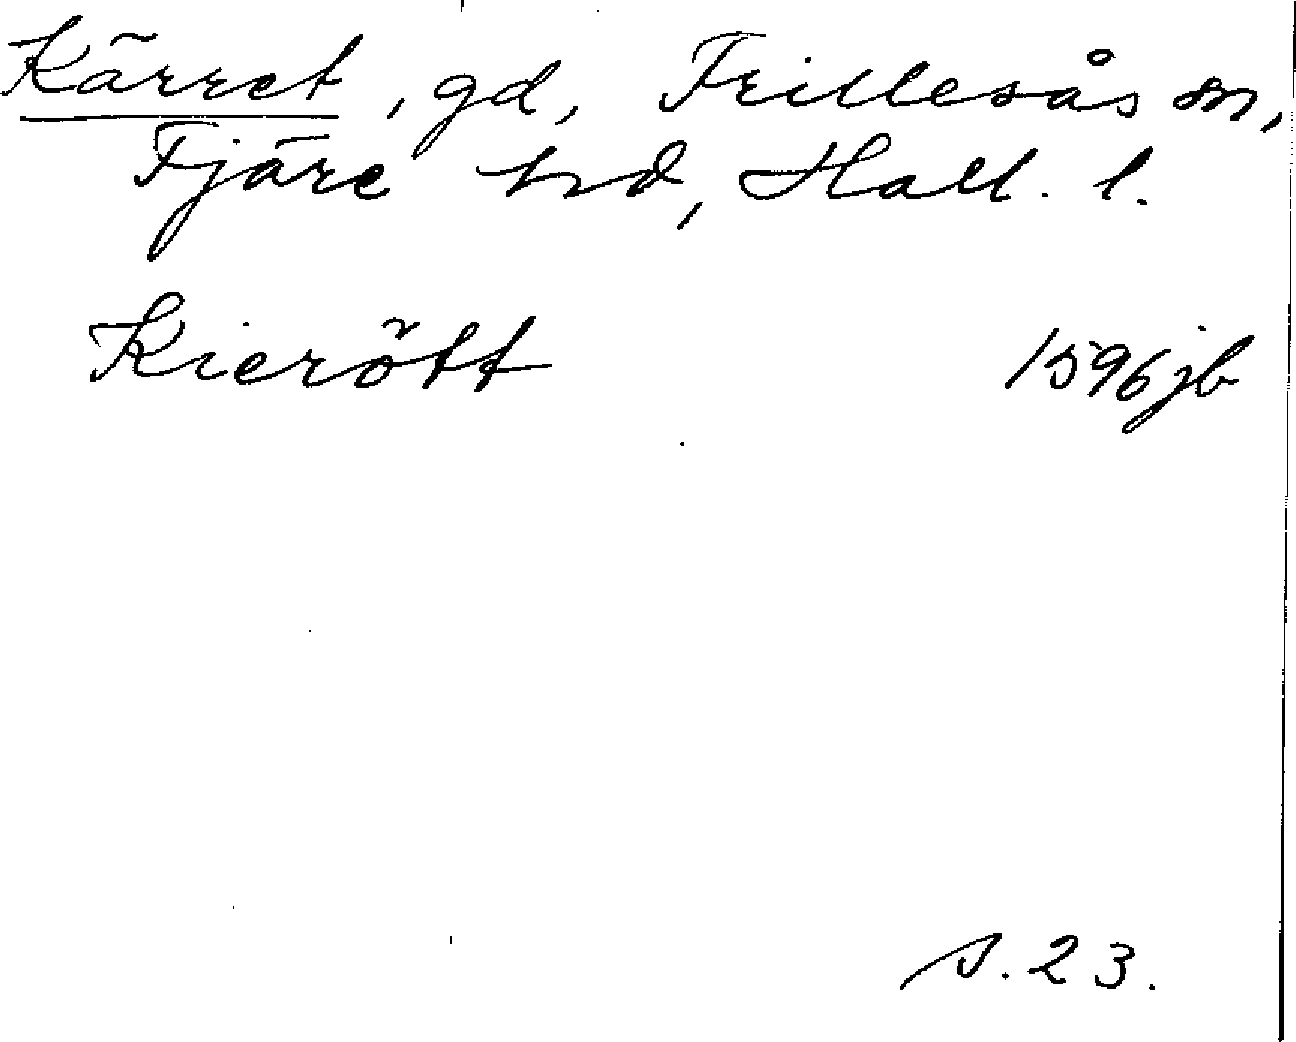 Kärret, gd, Frillesås sn,
Fjäre hd, Hall. l.
Kierött 1596 jb
s. 23.